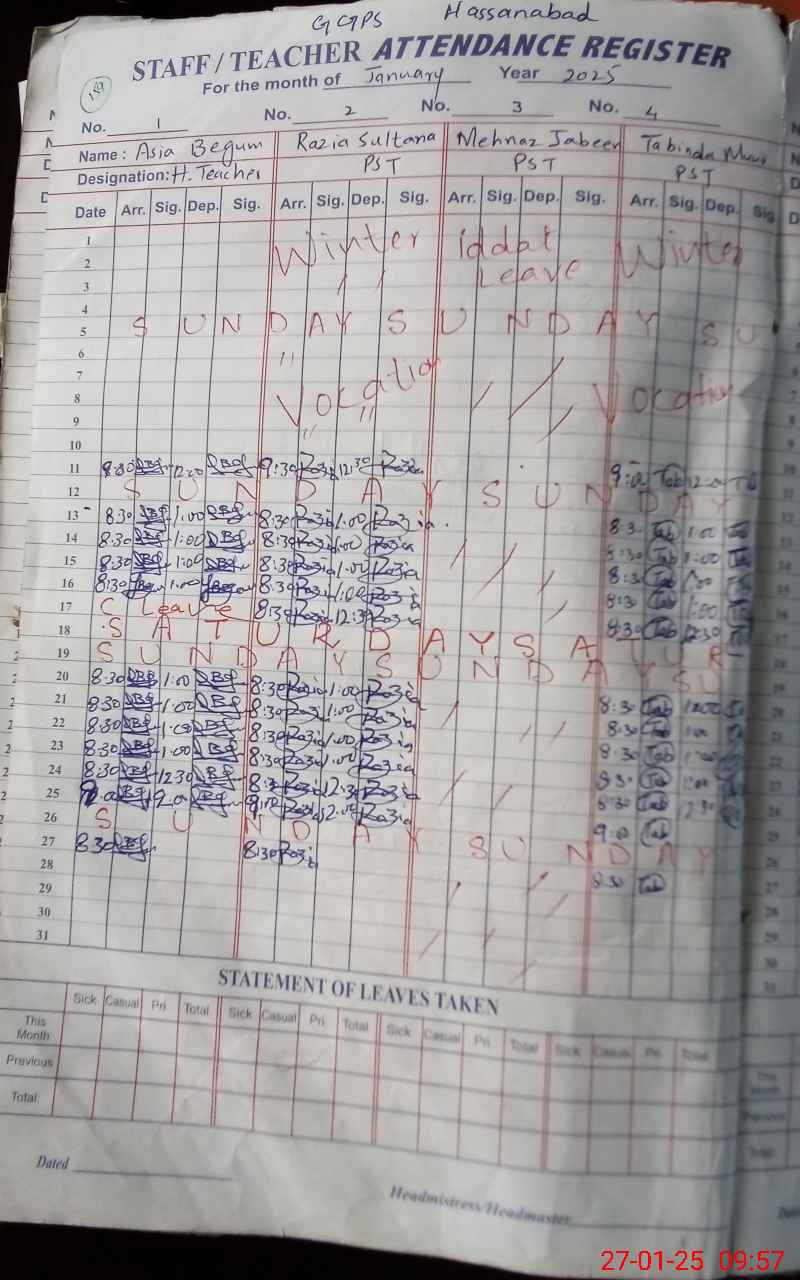 GGPS Hassanabad
STAFF / TEACHER ATTENDANCE REGISTER
For the month of January Year 2025
No. 1 No. 2 No. 3 No. 4
Name: Asia Begum Razia Sultana Mehnaz Jabeen Tabinda
Designation: H. Teacher PST PST PST
Date Arr. Sig. Dep. Sig. Arr. Sig. Dep. Sig. Arr. Sig. Dep. Sig. Arr. Sig. Dep. Sig
1 Winter iddat Winter
2 Leave
3
4
5 S U N D A Y S U N D A Y S U
6 "
7 Vocation
8 Vocation
9 "
10
11 8:30 9:30 Razia 12:30 Razia Tab
12 S U N D A Y S U N D A Y
13 8:30 1:00 8:30 Razia 1:00 Razia 8:3 Tab 1:00
14 8:30 1:00 8:30 Razia 1:00 Razia 8:30 Tab 1:00
15 8:30 1:00 8:30 Razia 1:00 Razia 8:30 Tab 1:00
16 8:30 1:00 8:30 Razia 1:00 Razia 8:30 Tab 1:00
17 C Leave 8:30 Razia 12:30 Razia 8:30 Tab 12:30
18 S A T U R D A Y S A T U R
19 S U N D A Y S U N D A Y S U
20 8:30 1:00 8:30 Razia 1:00 Razia 8:30 Tab 1:00
21 8:30 1:00 8:30 Razia 1:00 Razia 8:30 Tab 1:00
22 8:30 1:00 8:30 Razia 1:00 Razia 8:30 Tab 1:00
23 8:30 1:00 8:30 Razia 1:00 Razia 8:30 Tab 1:00
24 8:30 12:30 8:30 Razia 12:30 Razia 8:30 Tab 12:30
25 9:00 Razia 12:00 Razia 9:0 Tab
26 S U N D A Y S U N D A Y
27 8:30 8:30 Razia 8:30 Tab
28
29
30
31
STATEMENT OF LEAVES TAKEN
Sick Casual Pri Total Sick Casual Pri Total Sick Casual Pri Total Sick Casual Pri Total
This Month
Previous
Total:
Dated
Headmistress/Headmaster
27-01-25 09:57